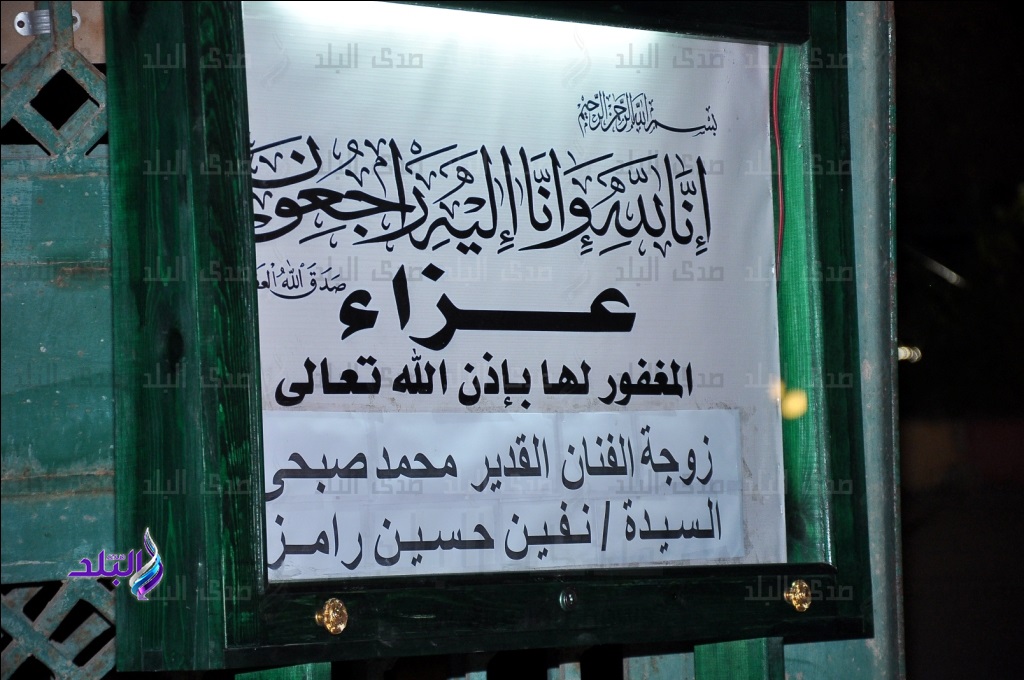 بسم الله الرحمن الرحيم
إِنَّا لِلَّهِ وَإِنَّا إِلَيْهِ رَاجِعُونَ
صَدَقَ اللهُ
عزاء
المغفور لها بإذن الله تعالى
زوجة الفنان القدير محمد صبحى
السيدة / نفين حسين رامز
صدى البلد